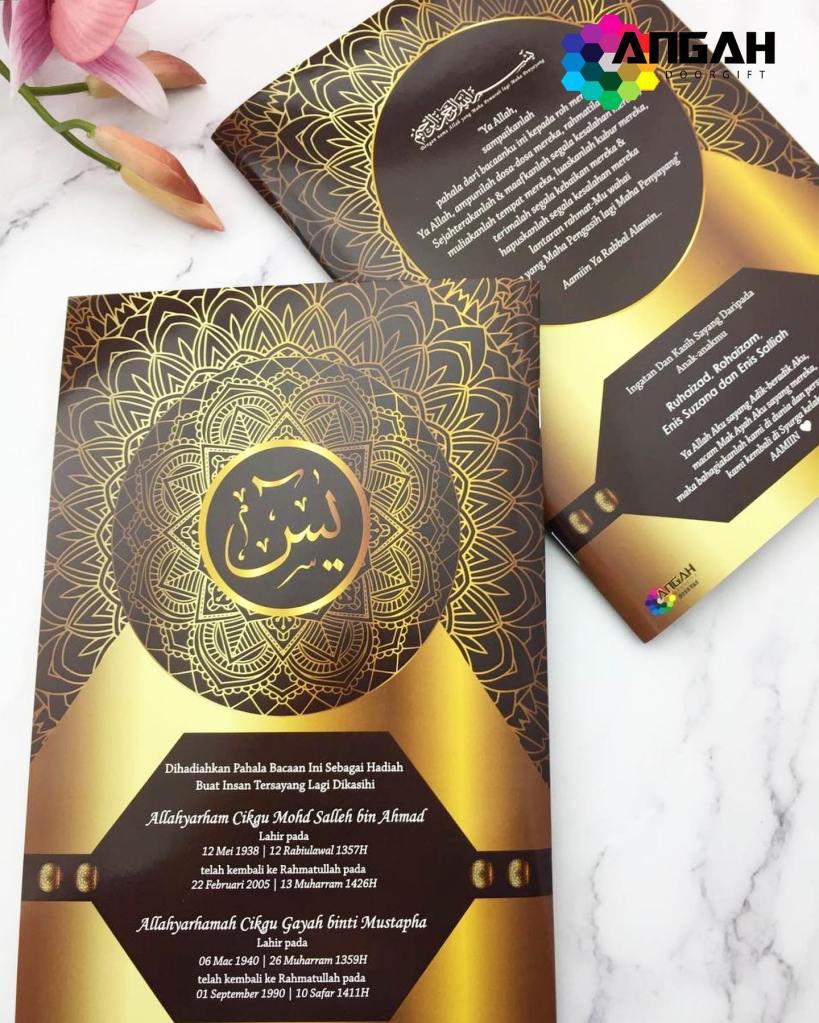 ANGAH
DOORGIFT
بسم الله الرحمن الرحيم
dengan nama Allah yang Maha Pemurah lagi Maha Penyayang
"Ya Allah,
sampaikanlah
pahala dari bacaanku ini kepada roh
Ya Allah, ampunilah dosa-dosa mereka, rahmatilah
Sejahterakanlah & maafkanlah segala kesalahan
muliakanlah tempat mereka, luaskanlah kubur mereka,
terimalah segala kebaikan mereka &
hapuskanlah segala kesalahan mereka
lantaran rahmat-Mu wahai
yang Maha Pengasih lagi Maha Penyayang"
Aamiin Ya Rabbal Alamin..
Ingatan Dan Kasih Sayang Daripada
Anak-anakmu
Ruhaizad, Rohaizam,
Enis Suzana dan Enis Salliah
Ya Allah Aku sayang Adik-beradik Aku,
macam Mak Ayah Aku sayang mereka,
maka bahagiakanlah kami di dunia dan
kami kembali di Syurga
AAMIIN
ANGAH
يس
Dihadiahkan Pahala Bacaan Ini Sebagai Hadiah
Buat Insan Tersayang Lagi Dikasihi
Allahyarham Cikgu Mohd Salleh bin Ahmad
Lahir pada
12 Mei 1938 | 12 Rabiulawal 1357H
telah kembali ke Rahmatullah pada
22 Februari 2005 | 13 Muharram 1426H
Allahyarhamah Cikgu Gayah binti Mustapha
Lahir pada
06 Mac 1940 | 26 Muharram 1359H
telah kembali ke Rahmatullah pada
01 September 1990 | 10 Safar 1411H